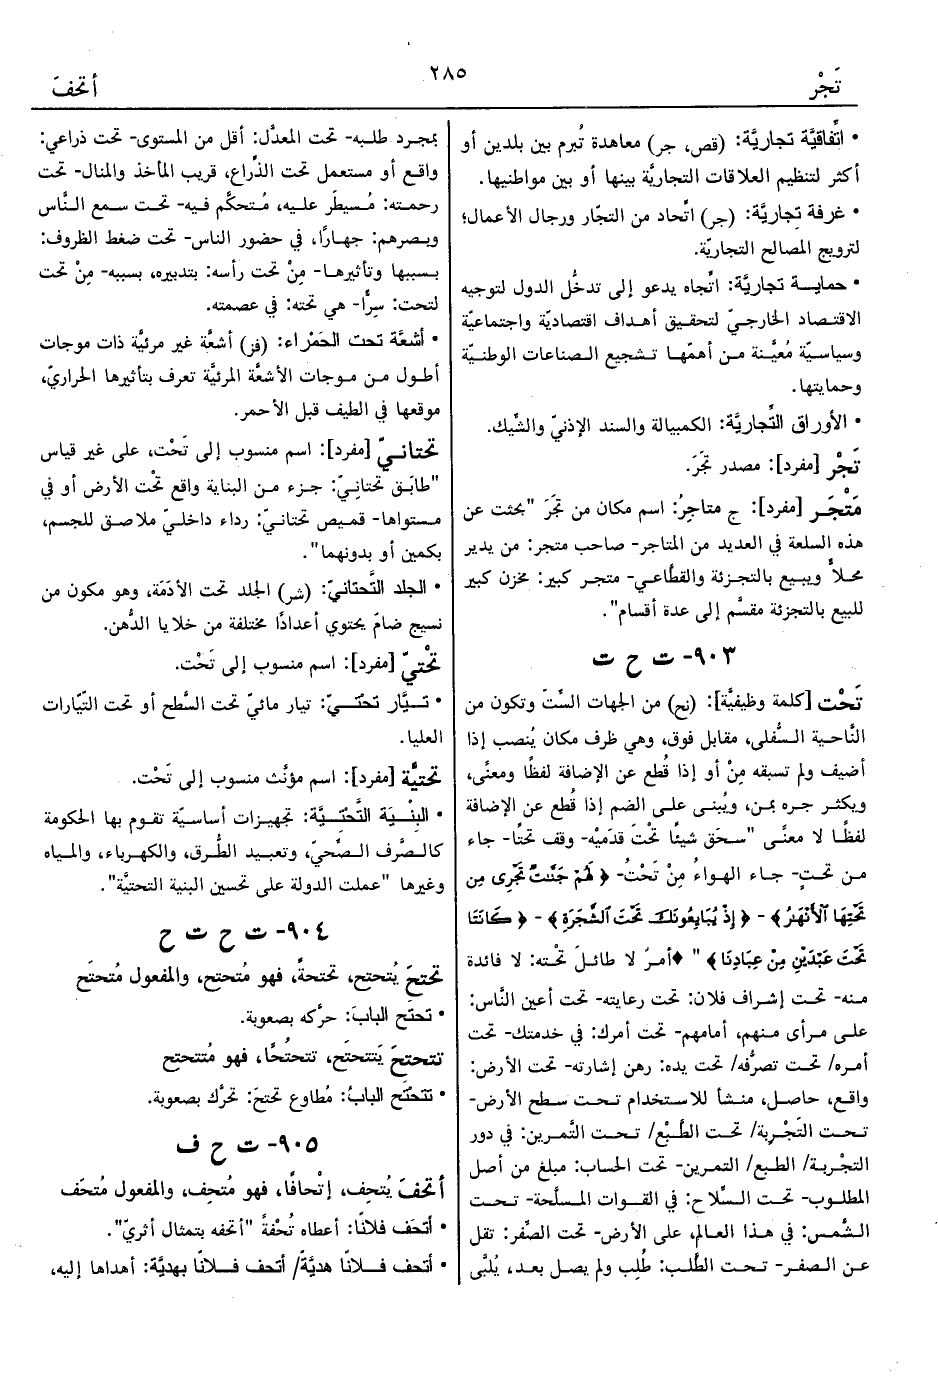 تَجْر
٢٨٥
أتحفَ
• اتِّفاقيَّة تجاريَّة: (قص، جر) معاهدة تُبرم بين بلدين أو
أكثر لتنظيم العلاقات التجاريَّة بينها أو بين مواطنيها.
• غرفة تجاريَّة: (جر) اتِّحاد من التجّار ورجال الأعمال؛
لترويج المصالح التجاريّة.
• حمايـة تجاريَّة: اتِّجاه يدعو إلى تدخُّل الدول لتوجيه
الاقتصاد الخارجيّ لتحقيق أهداف اقتصاديَّة واجتماعيَّة
وسياسيَّة مُعيَّنة من أهمّها تشجيع الصناعات الوطنيَّة
وحمايتها.
• الأوراق التِّجاريَّة: الكمبيالة والسند الإذنيّ والشِّيك.
تَجْر [مفرد]: مصدر تجَرَ.
مَتْجَر [مفرد]: ج متاجِرُ: اسم مكان من تجَرَ "بحثت عن
هذه السلعة في العديد من المتاجر- صاحب متجر: من يدير
محلاً ويبيع بالتجزئة والقطاعي- متجر كبير: مخزن كبير
للبيع بالتجزئة مقسَّم إلى عدة أقسام".
٩٠٣- ت ح ت
تَحْت [كلمة وظيفيَّة]: (نح) من الجهات السِّتّ وتكون من
النَّاحية السُّفلى، مقابل فوق، وهي ظرف مكان يُنصب إذا
أضيف ولم تسبقه مِنْ أو إذا قُطع عن الإضافة لفظًا ومعنًى،
ويكثر جره بمن، ويُبنى على الضم إذا قُطع عن الإضافة
لفظًا لا معنًى "سحَق شيئًا تحْتَ قدَميْه- وقف تحتًا- جاء
من تحتٍ- جاء الهواءُ مِنْ تَحْتُ- ﴿لَهُمْ جَنَّاتٌ تَجْرِي مِن
تَحْتِهَا ٱلْأَنْهَٰرُ﴾- ﴿إِذْ يُبَايِعُونَكَ تَحْتَ ٱلشَّجَرَةِ﴾- ﴿كَانَتَا
تَحْتَ عَبْدَيْنِ مِنْ عِبَادِنَا﴾" ♦أمرٌ لا طائلَ تحْته: لا فائدة
منه- تحت إشراف فلان: تحت رعايته- تحت أعين النَّاس:
على مرأى منهم، أمامهم- تحت أمرك: في خدمتك- تحت
أمره/ تحت تصرُّفه/ تحت يده: رهن إشارته- تحت الأرض:
واقع، حاصل، منشأ للاستخدام تحت سطح الأرض-
تحت التَّجْربة/ تحت الطَّبْع/ تحت التَّمرين: في دور
التجْربة/ الطبع/ التمرين- تحت الحساب: مبلغ من أصل
المطلوب- تحت السِّلاح: في القوات المسلَّحة- تحت
الشَّمس: في هذا العالم، على الأرض- تحت الصِّفر: تقل
عن الصفر- تحت الطَّلب: طُلب ولم يصل بعد، يُلبَّى
بمجرد طلبه- تحت المعدَّل: أقل من المستوى- تحت ذراعي:
واقع أو مستعمل تحت الذِّراع، قريب المأخذ والمنال- تحت
رحمته: مُسيطَر عليه، مُتحكَّم فيه- تحت سمع النَّاس
وبصرهم: جهارًا، في حضور الناس- تحت ضغط الظروف:
بسببها وتأثيرها- مِنْ تحت رأسه: بتدبيره، بسببه- مِنْ تحت
لتحت: سِرًّا- هي تحته: في عصمته.
• أشعَّة تحت الحَمْراء: (فز) أشعَّة غير مرئيَّة ذات موجات
أطول من موجات الأشعَّة المرئيَّة تعرف بتأثيرها الحراريّ،
موقعها في الطيف قبل الأحمر.
تحتانيّ [مفرد]: اسم منسوب إلى تَحْت، على غير قياس
"طابَق تحتانيّ: جزء من البناية واقع تحْت الأرض أو في
مستواها- قميص تحتانيّ: رداء داخليّ ملاصق للجسم،
بكمين أو بدونهما".
• الجلد التَّحتانيّ: (شر) الجلد تحت الأدَمَة، وهو مكون من
نسيج ضامّ يحتوي أعدادًا مختلفة من خلايا الدُّهن.
تحْتيّ [مفرد]: اسم منسوب إلى تَحْت.
• تيَّار تحتيّ: تيار مائيّ تحت السَّطح أو تحت التيّارات
العليا.
تحتيَّة [مفرد]: اسم مؤنَّث منسوب إلى تَحْت.
• البِنْية التَّحْتيَّة: تجهيزات أساسيَّة تقوم بها الحكومة
كالصَّرف الصِّحيّ، وتعبيد الطُّرق، والكهرباء، والمياه
وغيرها "عملت الدولة على تحسين البنية التحتيَّة".
٩٠٤- ت ح ت ح
تحتحَ يُتحتح، تحتحةً، فهو مُتحتِح، والمفعول مُتحتَح
• تحتَح البابَ: حرَّكه بصعوبة.
تتحتحَ يَتتحتَح، تتحتُحًا، فهو مُتتحتِح
• تتحتَح البابُ: مُطاوع تحتحَ: تحرَّك بصعوبة.
٩٠٥- ت ح ف
أتحَفَ يُتحِف، إتحافًا، فهو مُتحِف، والمفعول مُتحَف
• أتحَف فلانًا: أعطاه تُحْفةً "أتحفه بتمثال أثريّ".
• أتحَف فلانًا هديَّةً/ أتحف فلانًا بهديَّة: أهداها إليه،